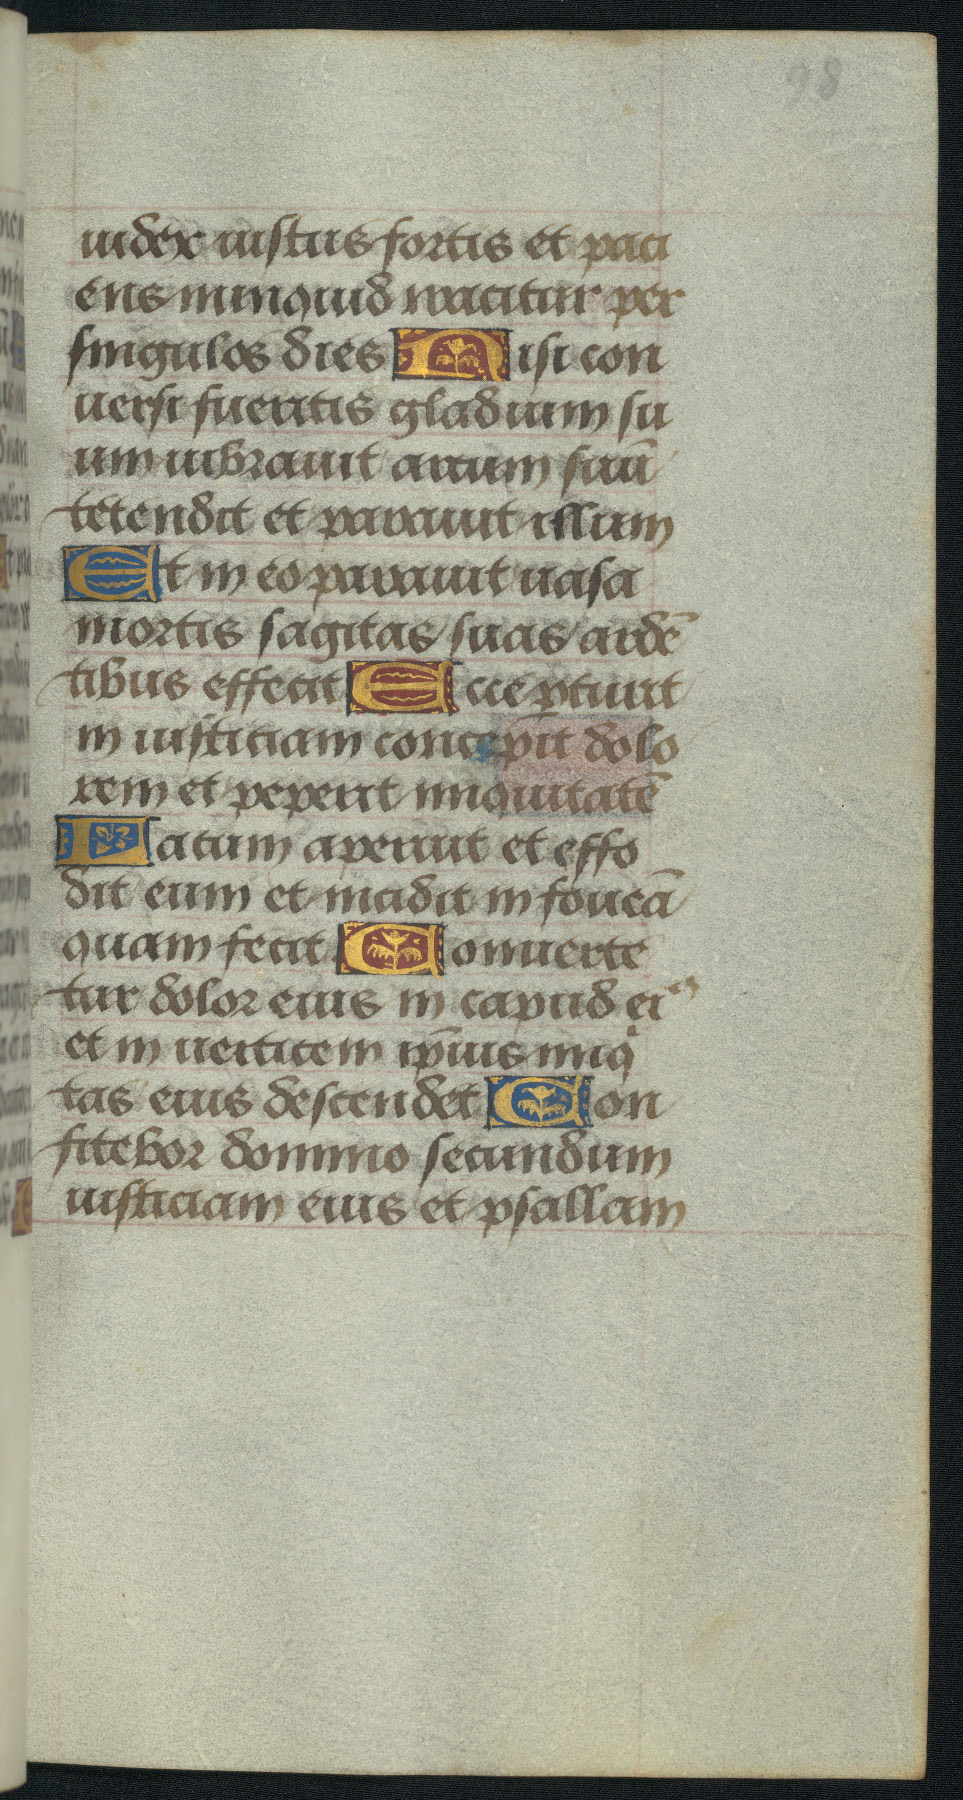 98
iudex iustus fortis et paci
ens nunquid irascitur per
singulos dies Nisi con
uersi fueritis gladium su
um uibrauit arcum suū
tetendit et parauit illum
Et in eo parauit uasa
mortis sagitas suas ardē
tibus effecit Ecce pturit
in iusticiam concepit dolo
rem et peperit iniquitatē
Lacum aperuit et effo
dit eum et incidit in foueā
quam fecit Conuerte
tur dolor eius in capud ei⁹
et in uerticem ip̄ius iniq
tas eius descendet Con
fitebor domino secundum
iusticiam eius et psallam